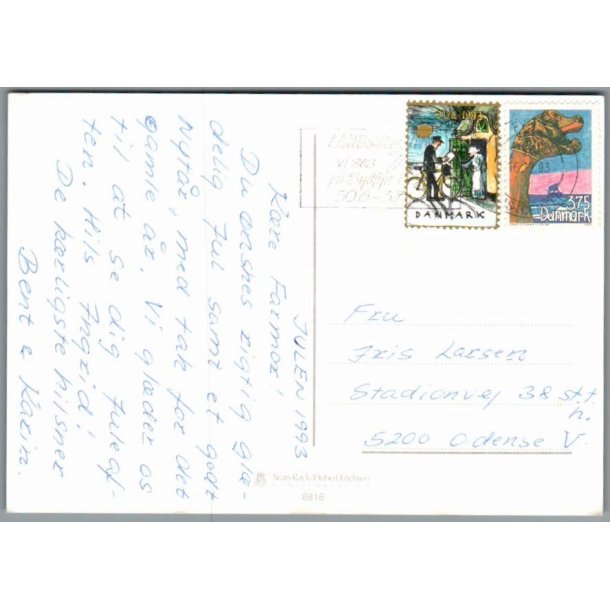 JULEN 1993
Kære Farmor!
Du ønskes rigtig glæ-
delig Jul samt et godt
Nytår, med tak for det
gamle år. Vi glæder os
til at se dig Juleaf-
ten. Hils Ingrid!
De kærligste hilsner
Bent & Karin.
JUL 1993
DANMARK
375
Danmark
93
Vi ses
30.6-3.7
Fru
Iris Larsen
Stadionvej 38 st.t.
h.
5200 Odense V.
Scan-Rack/Hubert Erichsen
8816